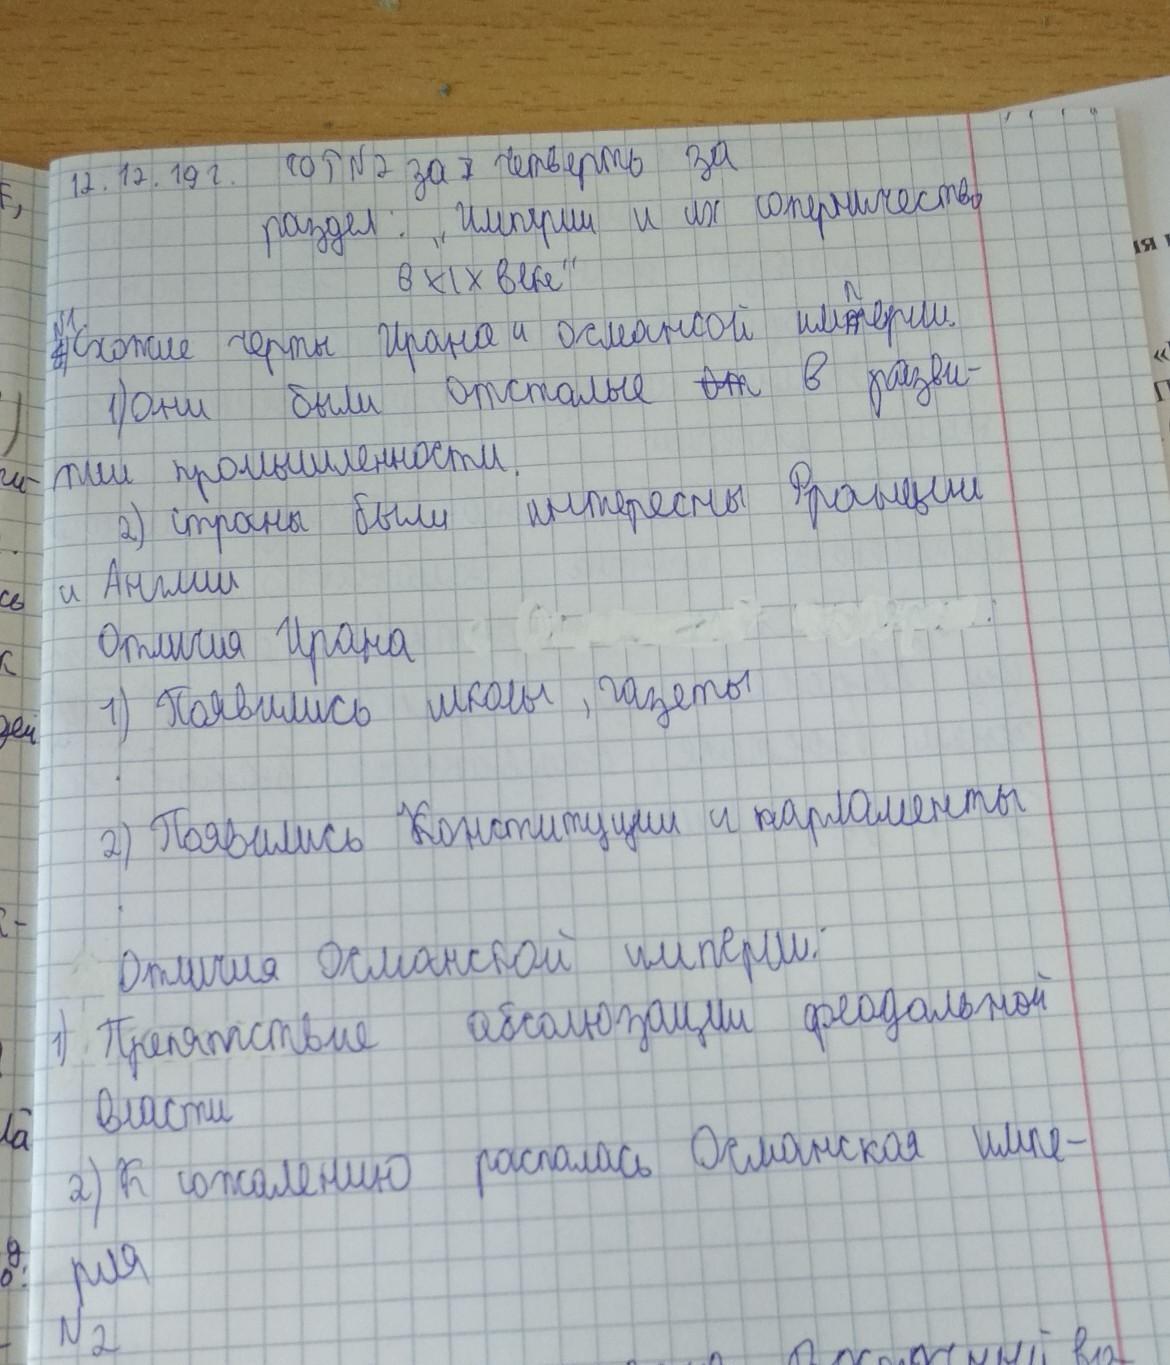 12.12.19г. СОЧ №2 за 2 четверть за
раздел: „Империи и их соперничество
в XIX веке"
№1
Схожие черты Ирана и османсой империи.
1) Они были отсталые от в разви-
тии промышленности.
2) страны были интересны Франции
и Англии
Отличия Ирана
1) Появились школы, газеты
2) Появились Конституции и парламенты
Отличия Османской империи:
1) Препятствие абсолюзации феодальной
власти
2) К сожалению распалась Османская импе-
рия
№2